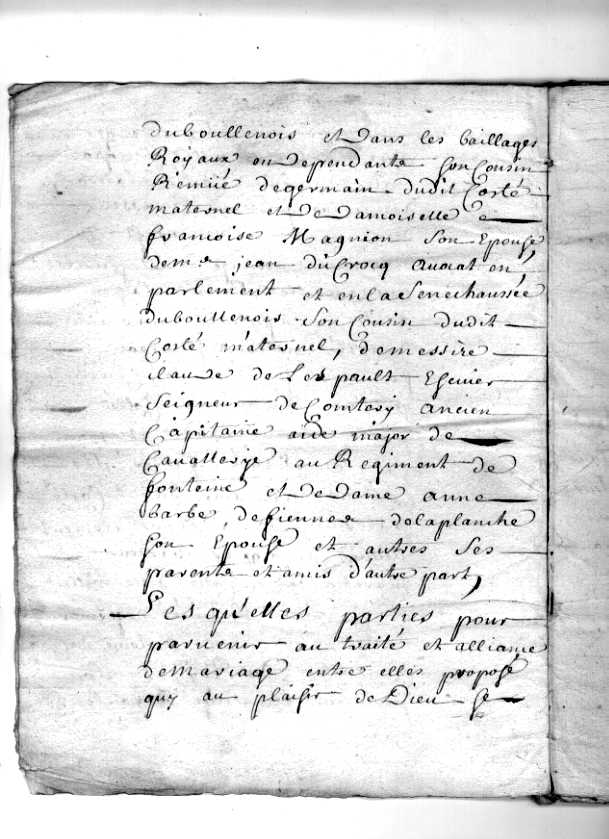 duboullenois et dans les baillages
Royaux en dependants son Cousin
Remüé degermain dudit Costé
maternel et de damoiselle
francoise Magnion son Epouse
de me jean duCrocq avocat en
parlement et enla Senechaussée
duboullenois son Cousin dudit
Costé maternel, demessire
claude de Lespault Escuier
Seigneur de Comtery ancien
Capitaine aide major de
Cavallerye au Regiment de
fonteine et de dame anne
barbe defiennes delaplanche
son Epouse et autres ses
parents et amis d'autre part,
Lesquelles parties pour
parvenir au traité et alliance
demariage entre elles proposé
quy au plaisir de Dieu se